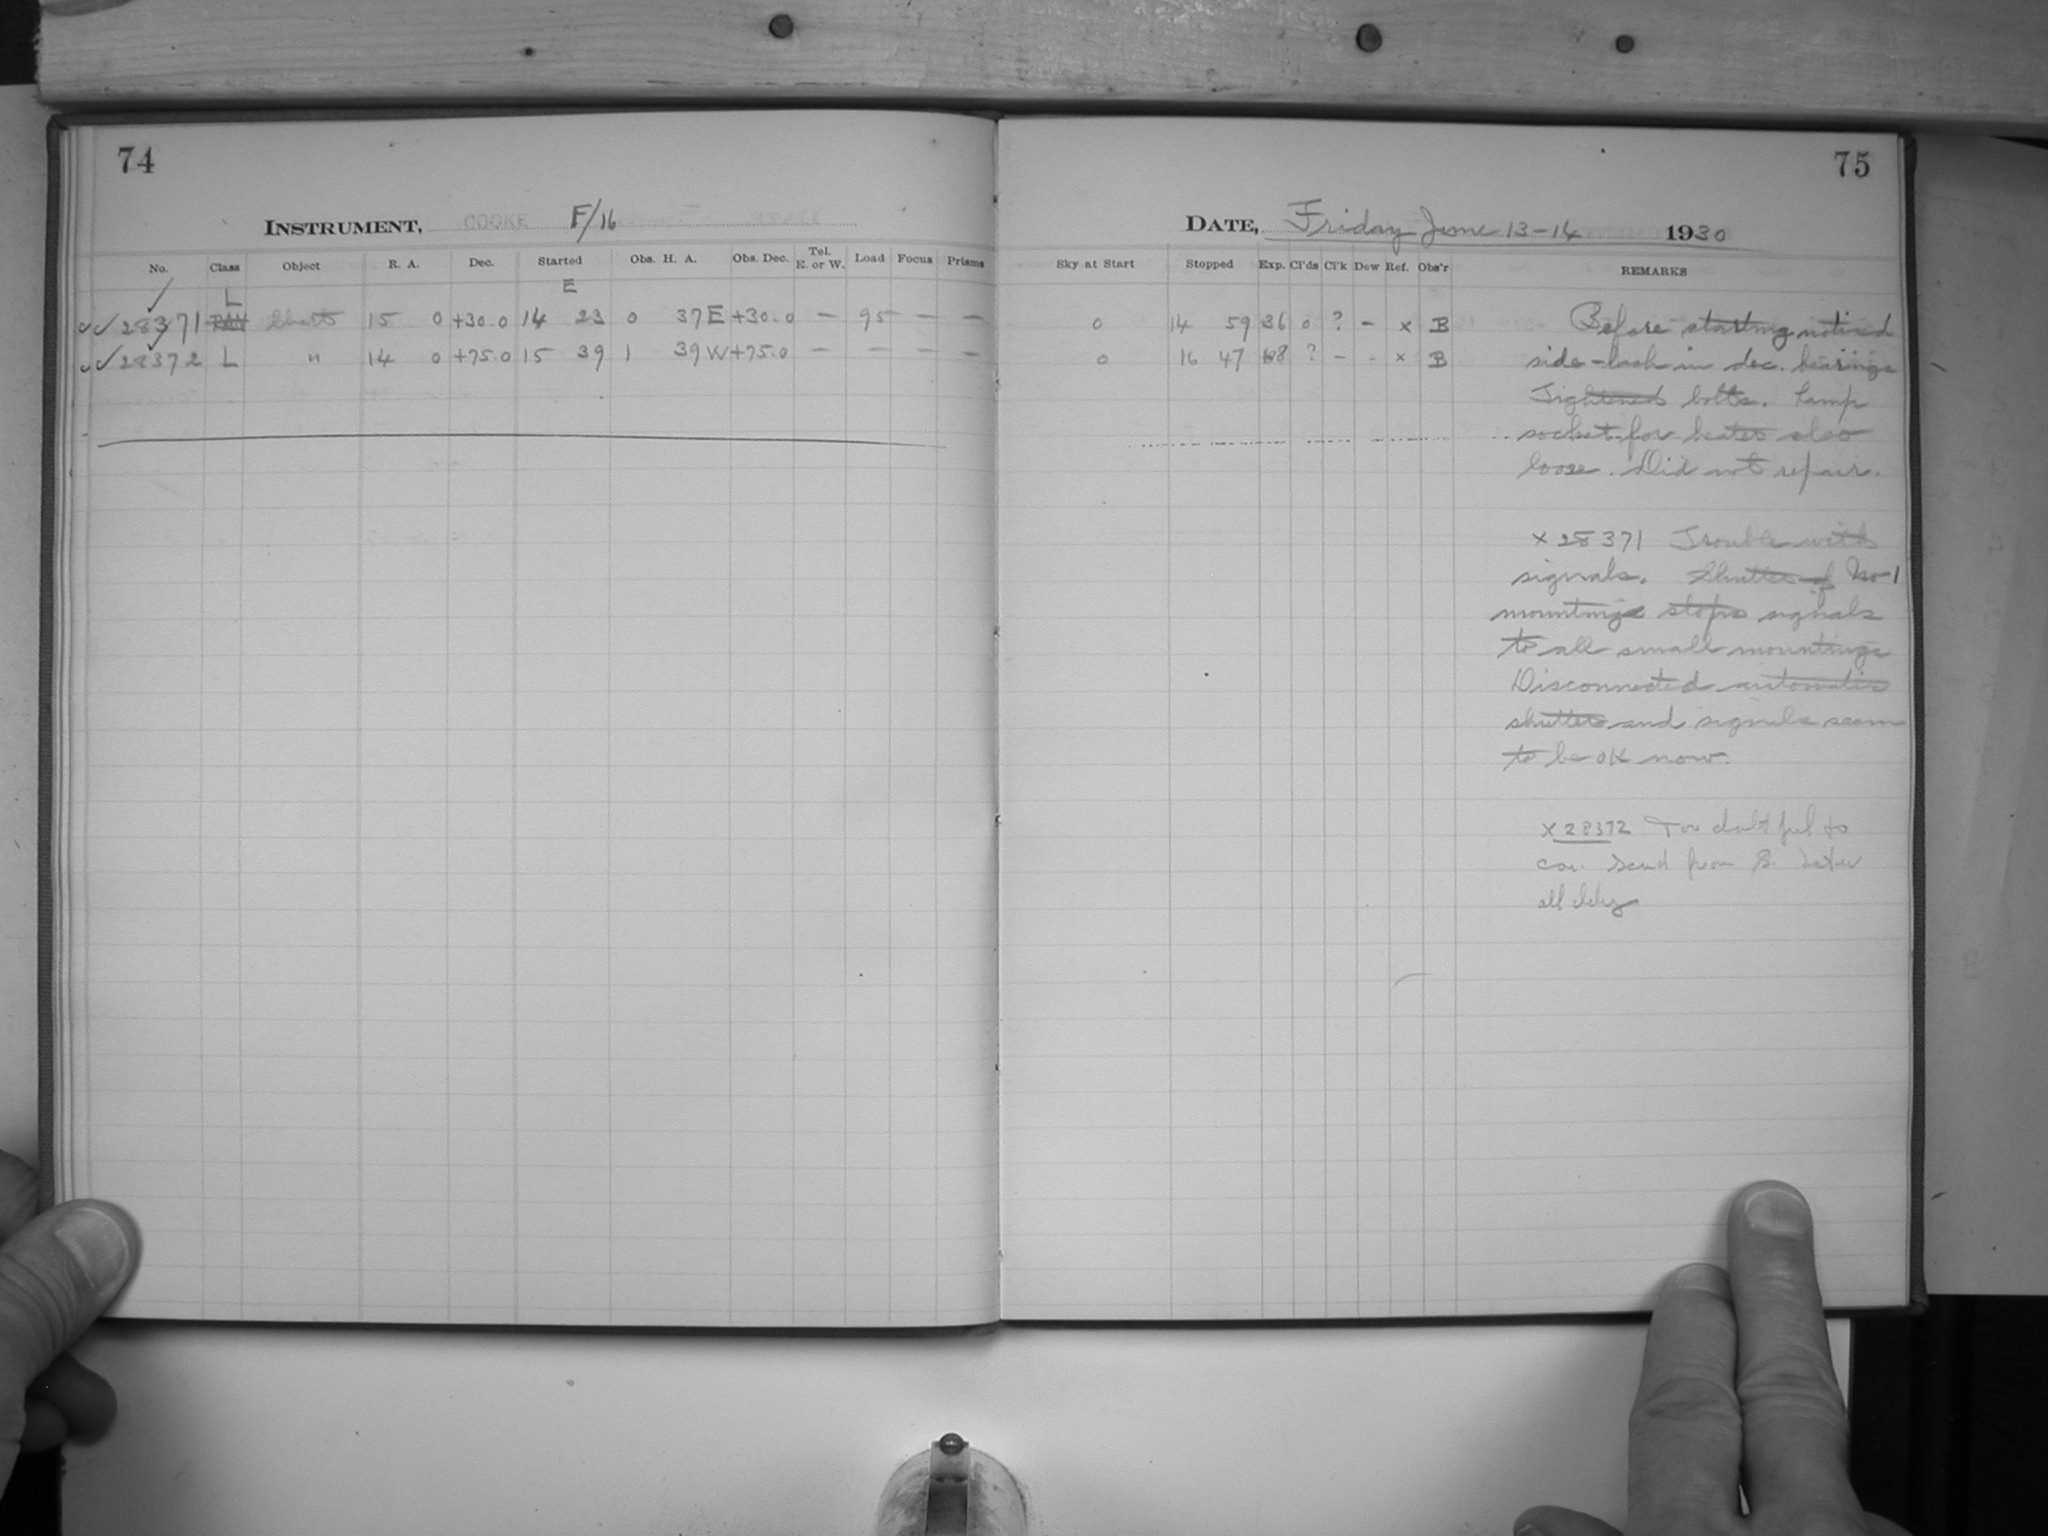 74
INSTRUMENT, COOKE F/16
No. Class Object R. A. Dec. Started Obs. H. A. Obs. Dec. Tel. E. or W. Load Focus Prisms
L E
✓✓ 28371 RAY Chart 15 0 +30.0 14 23 0 37E +30.0 — 95 — —
✓✓ 28372 L " 14 0 +75.0 15 39 1 39W +75.0 — — — —
75
DATE, Friday June 13-14 1930
Sky at Start Stopped Exp. Cl'ds Cl'k Dew Ref. Obs'r REMARKS
0 14 59 36 0 ? - x B
0 16 47 68 ? - - x B
Before starting noticed
side-lash in dec. bearings
Tightened bolts. Lamp
socket for heater also
loose. Did not repair.
x 28371 Trouble with
signals. Shutter of No 1
mountings stops signals
to all small mountings
Disconnected automatic
shutters and signals seem
to be OK now.
x 28372 Too doubtful to
from S.
all